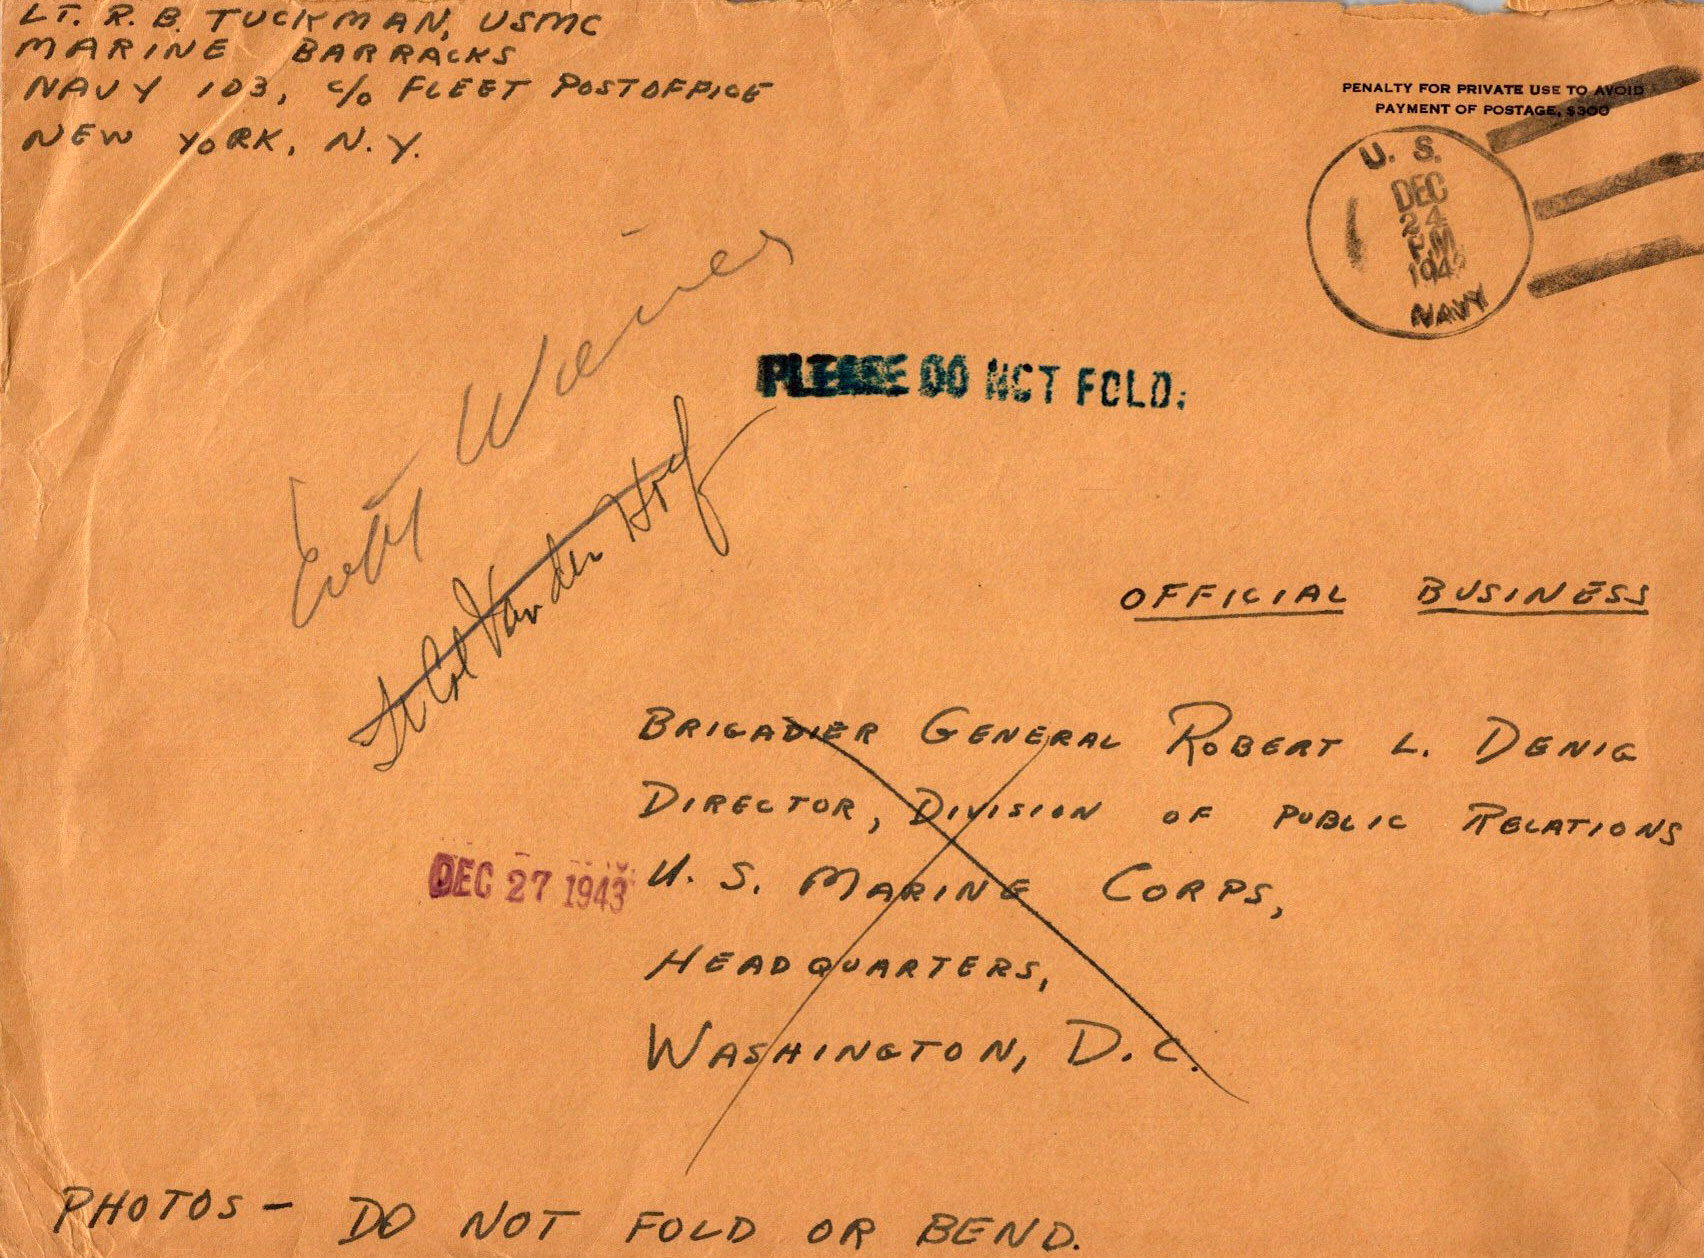 LT. R. B. TUCKMAN, USMC
MARINE BARRACKS
NAVY 103, c/o FLEET POSTOFFICE
NEW YORK, N.Y.
PENALTY FOR PRIVATE USE TO AVOID
PAYMENT OF POSTAGE, $300
U. S.
DEC
24
P.M.
194
NAVY
PLEASE DO NOT FOLD.
Lt Col Van der Hoef
OFFICIAL BUSINESS
BRIGADIER GENERAL ROBERT L. DENIG
DIRECTOR, DIVISION OF PUBLIC RELATIONS
DEC 27 1943
U. S. MARINE CORPS,
HEADQUARTERS,
WASHINGTON, D.C.
PHOTOS - DO NOT FOLD OR BEND.